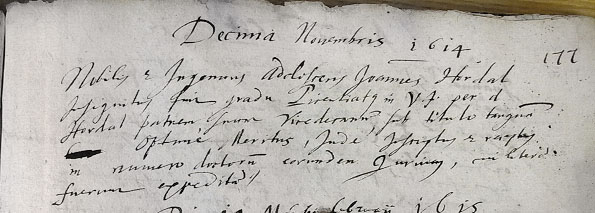 Decima Novembris 1614
177
Nobilis & Ingenuus Adolescens Joannes Hordal
Insignitus fuit gradu Licentiatus in V. J. per d
Hordal patrem suum Vicedecanum, sub titulo tanquam
Optime Meritus, Inde Inscriptus & receptus
in numero doctorum eorundem Jurium,
fuerunt expedita
1615